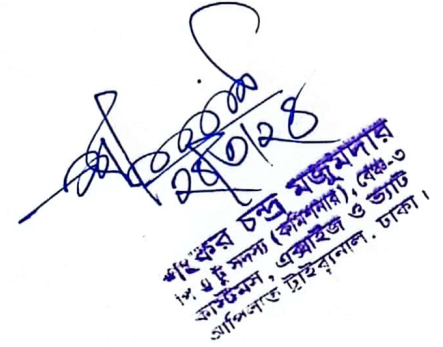 ২৪/৩/২৪
চন্দ্র মজুমদার
সদস্য (কমিশনার), বেঞ্চ-৩
কাস্টমস, এক্সাইজ ও ভ্যাট
আপিলাত ট্রাইব্যুনাল, ঢাকা।